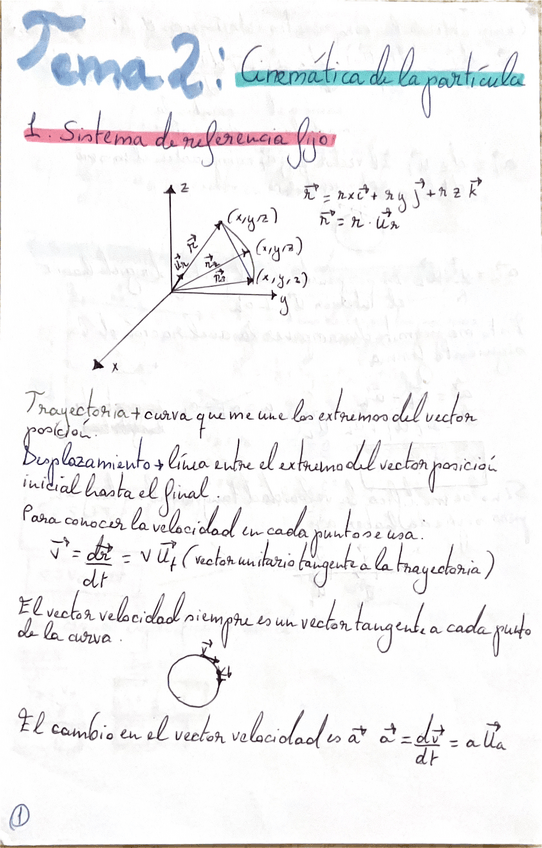 Tema 2: Cinemática de la partícula
1. Sistema de referencia fijo
z
(x,y,z)
r⃗ = rx i⃗ + ry j⃗ + rz k⃗
r⃗ = r · u⃗r
r⃗
(x,y,z)
u⃗r
r⃗2
r⃗1
(x,y,z)
y
x
Trayectoria → curva que me une los extremos del vector
posición.
Desplazamiento → línea entre el extremo del vector posición
inicial hasta el final.
Para conocer la velocidad en cada punto se usa.
v⃗ = dr⃗/dt = v u⃗t (vector unitario tangente a la trayectoria)
El vector velocidad siempre es un vector tangente a cada punto
de la curva.
v⃗
El cambio en el vector velocidad es a⃗ a⃗ = dv⃗/dt = a u⃗a
1